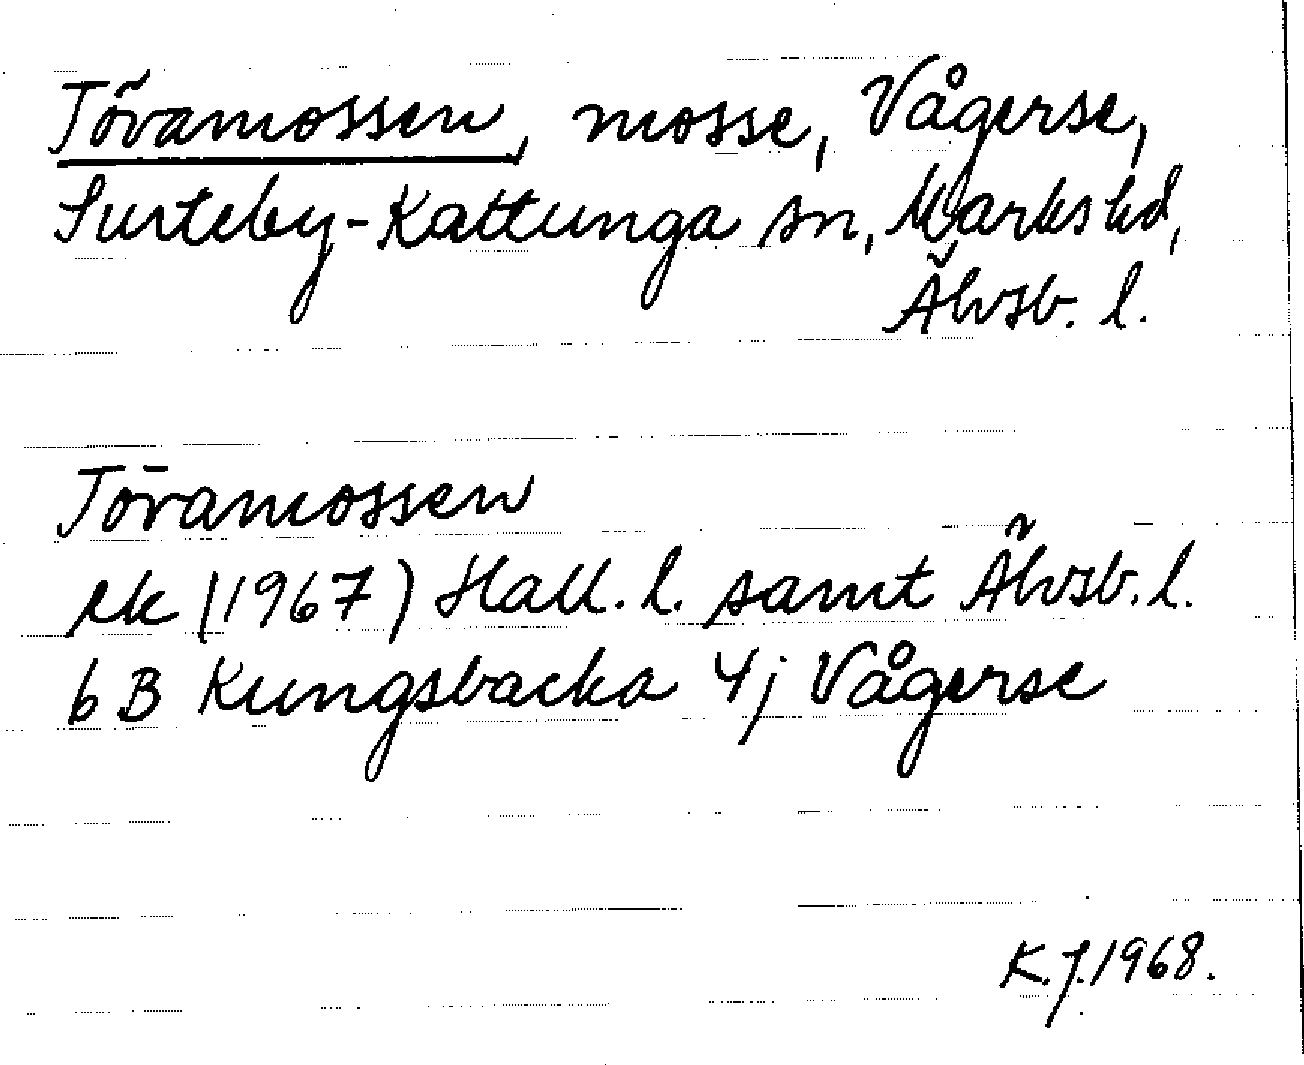 Tövamossen, mosse, Vågerse,
Surteby-Kattunga sn, Marks hd,
Älvsb. l.
Tövamossen
ek (1967) Hall. l. samt Älvsb. l.
6 B Kungsbacka 4j Vågerse
K.J. 1968.